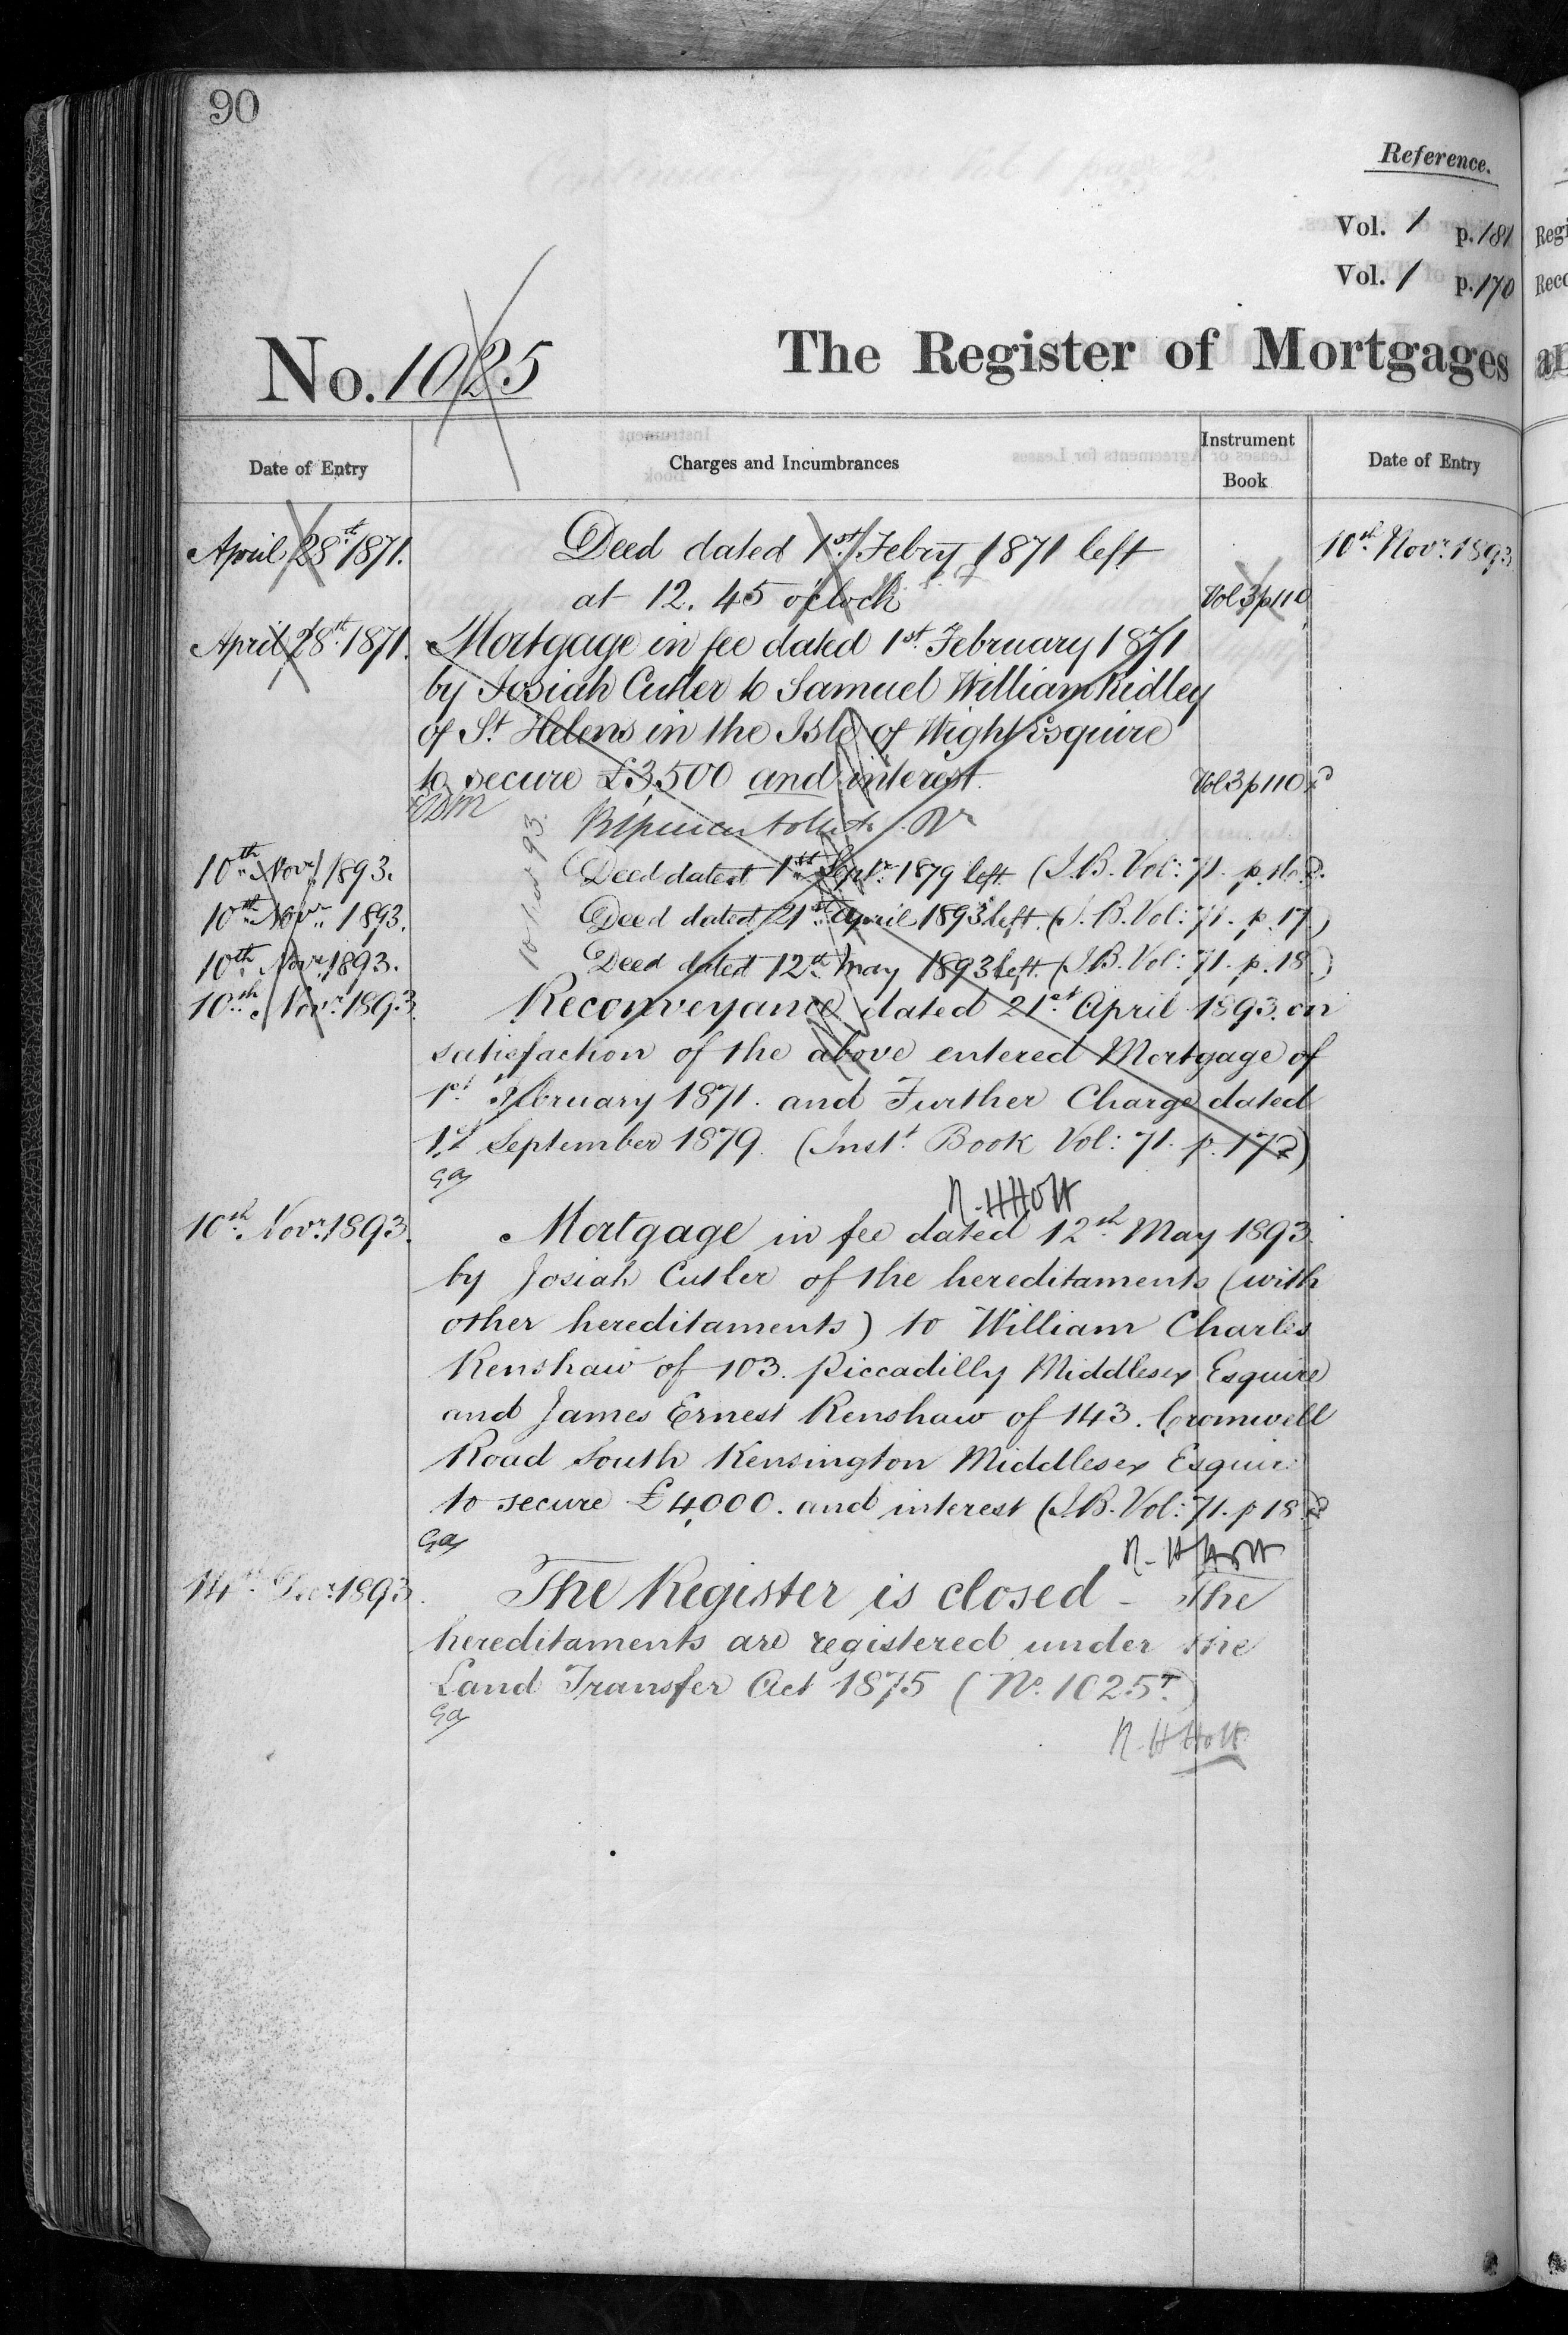 90
Reference.
Vol. 1 p. 181
Vol. 1 p. 170
No. 1025
The Register of Mortgages
Date of Entry
Charges and Incumbrances
Instrument Book
Date of Entry
April 28th 1871. Deed dated 1st Febry 1871 left 10th Novr. 1893
at 12. 45 o'clock Vol 3 p 110
April 28th 1871. Mortgage in fee dated 1st February 1871
by Josiah Cutler to Samuel William Ridley
of St Helens in the Isle of Wight Esquire
to secure £3,500 and interest Vol 3 p 110
10th Novr. 1893. Deed dated 1st Septr. 1879 left (I.B. Vol: 71. p. 16.)
10th Novr. 1893. Deed dated 21st April 1893 left (I.B. Vol: 71. p. 17.)
10th Novr. 1893. Deed dated 12th May 1893 left (I.B. Vol: 71. p. 18.)
10th Novr. 1893. Reconveyance dated 21st April 1893. on
satisfaction of the above entered Mortgage of
1st February 1871. and Further Charge dated
1st September 1879. (Inst. Book Vol: 71. p. 17)
N. H Holt
10th Novr. 1893. Mortgage in fee dated 12th May 1893.
by Josiah Cutler of the hereditaments (with
other hereditaments) to William Charles
Renshaw of 103. Piccadilly Middlesex Esquire
and James Ernest Renshaw of 143. Cromwell
Road South Kensington Middlesex Esquire
to secure £4,000. and interest (I.B. Vol: 71. p 18.)
N. H Holt
14th Decr. 1893. The Register is closed - The
hereditaments are registered under the
Land Transfer Act 1875 (No. 1025T.)
N. H Holt
Regi
Reco